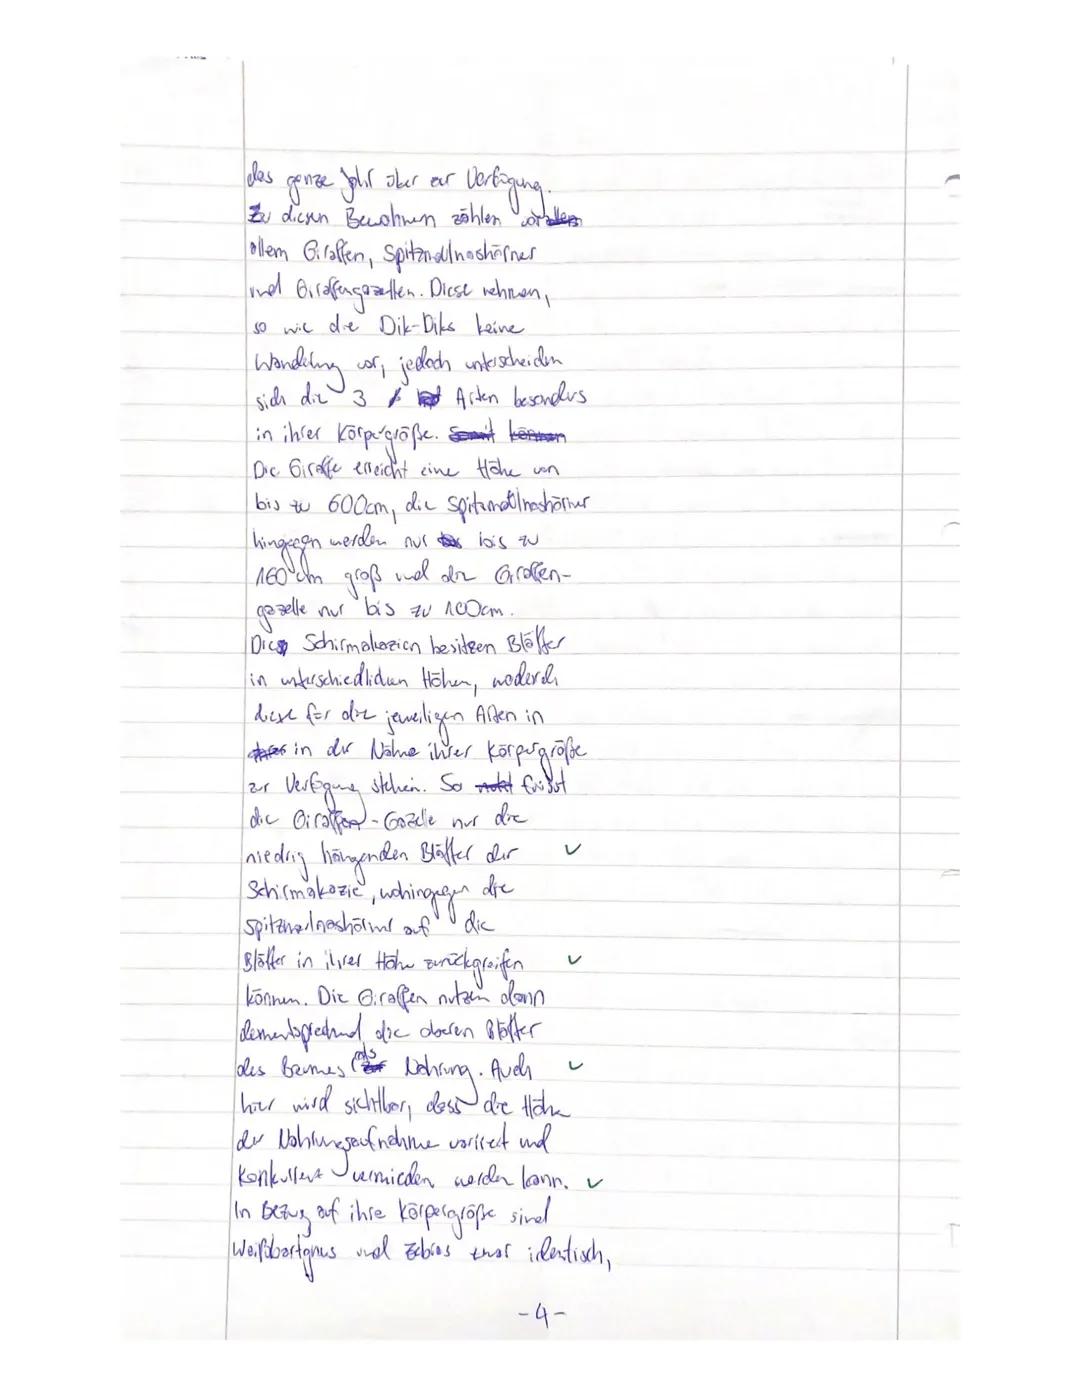 das ganze Jahr über zur Verfügung.
Zu diesen Bewohnern zählen vor
allem Giraffen, Spitzmaulnashörner
und Giraffengazellen. Diese nehmen,
so wie die Dik-Diks keine
Wanderung vor, jedoch unterscheiden
sich die 3 Arten besonders
in ihrer Körpergröße.
Die Giraffe erreicht eine Höhe von
bis zu 600cm, die Spitzmaulnashörner
hingegen werden nur bis zu
160 cm groß und die Giraffen-
gazelle nur bis zu 100cm.
Die Schirmakazien besitzen Blätter
in unterschiedlichen Höhen, wodurch
diese für die jeweiligen Arten in
in der Nähe ihrer Körpergröße
zur Verfügung stehen. So frisst
die Giraffen-Gazelle nur die
niedrig hängenden Blätter der
Schirmakazie, wohingegen die
Spitzmaulnashörner auf die
Blätter in ihrer Höhe zurückgreifen
können. Die Giraffen nutzen dann
dementsprechend die oberen Blätter
des Baumes als Nahrung. Auch
hier wird sichtbar, dass die Höhe
der Nahrungsaufnahme variiert und
Konkurrenz vermieden werden kann.
In Bezug auf ihre Körpergröße sind
Weißbartgnus und Zebras zwar identisch,
-4-